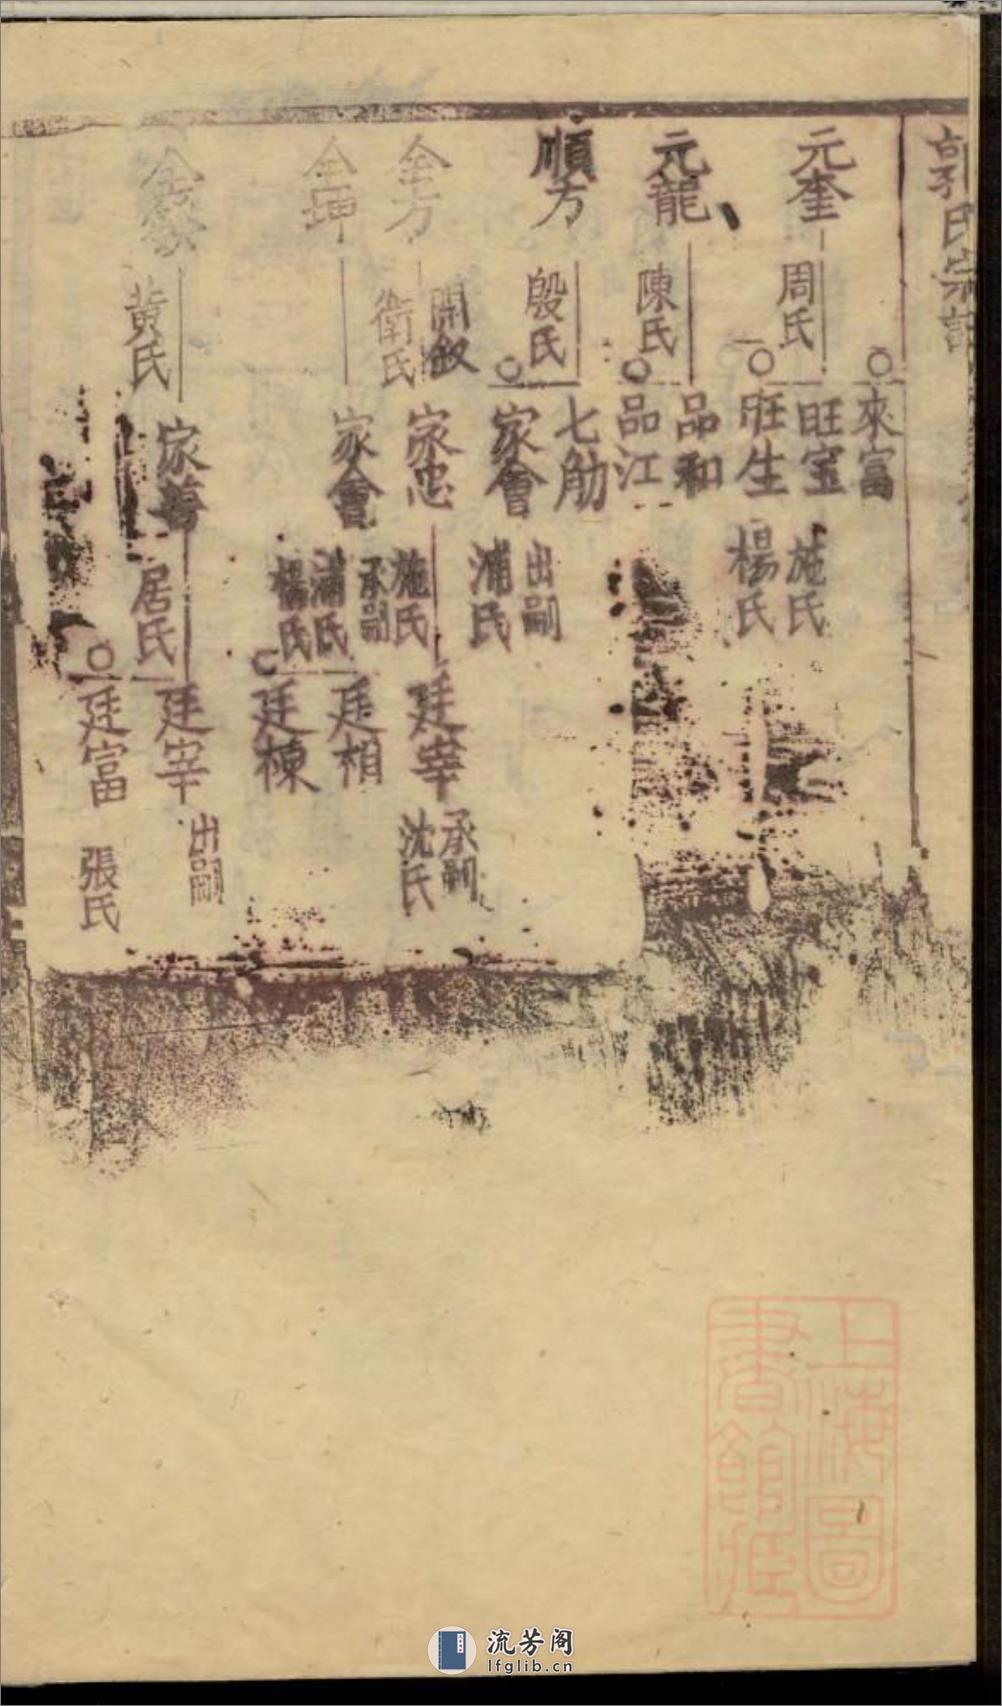 氏宗譜
來富
元奎
周氏
旺宝
施氏
旺生
楊氏
元龍
陳氏
品和
品江
順方
殷氏
七觔
出嗣
家會
浦氏
全方
開叙
衛氏
家忠
施氏
廷宰
承嗣
沈氏
全坤
家會
承嗣
浦氏
楊氏
廷相
廷棟
黃氏
家善
居氏
廷宰
出嗣
廷富
張氏
上海圖
書館臧
流芳阁
lfglib.cn